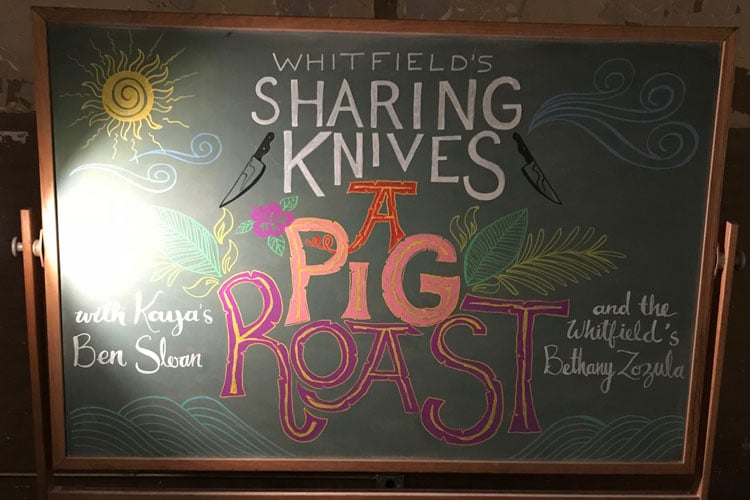 WHITFIELD'S
SHARING
KNIVES
A
PIG
ROAST
with Kaya's
Ben Sloan
and the
Whitfield's
Bethany Zozula